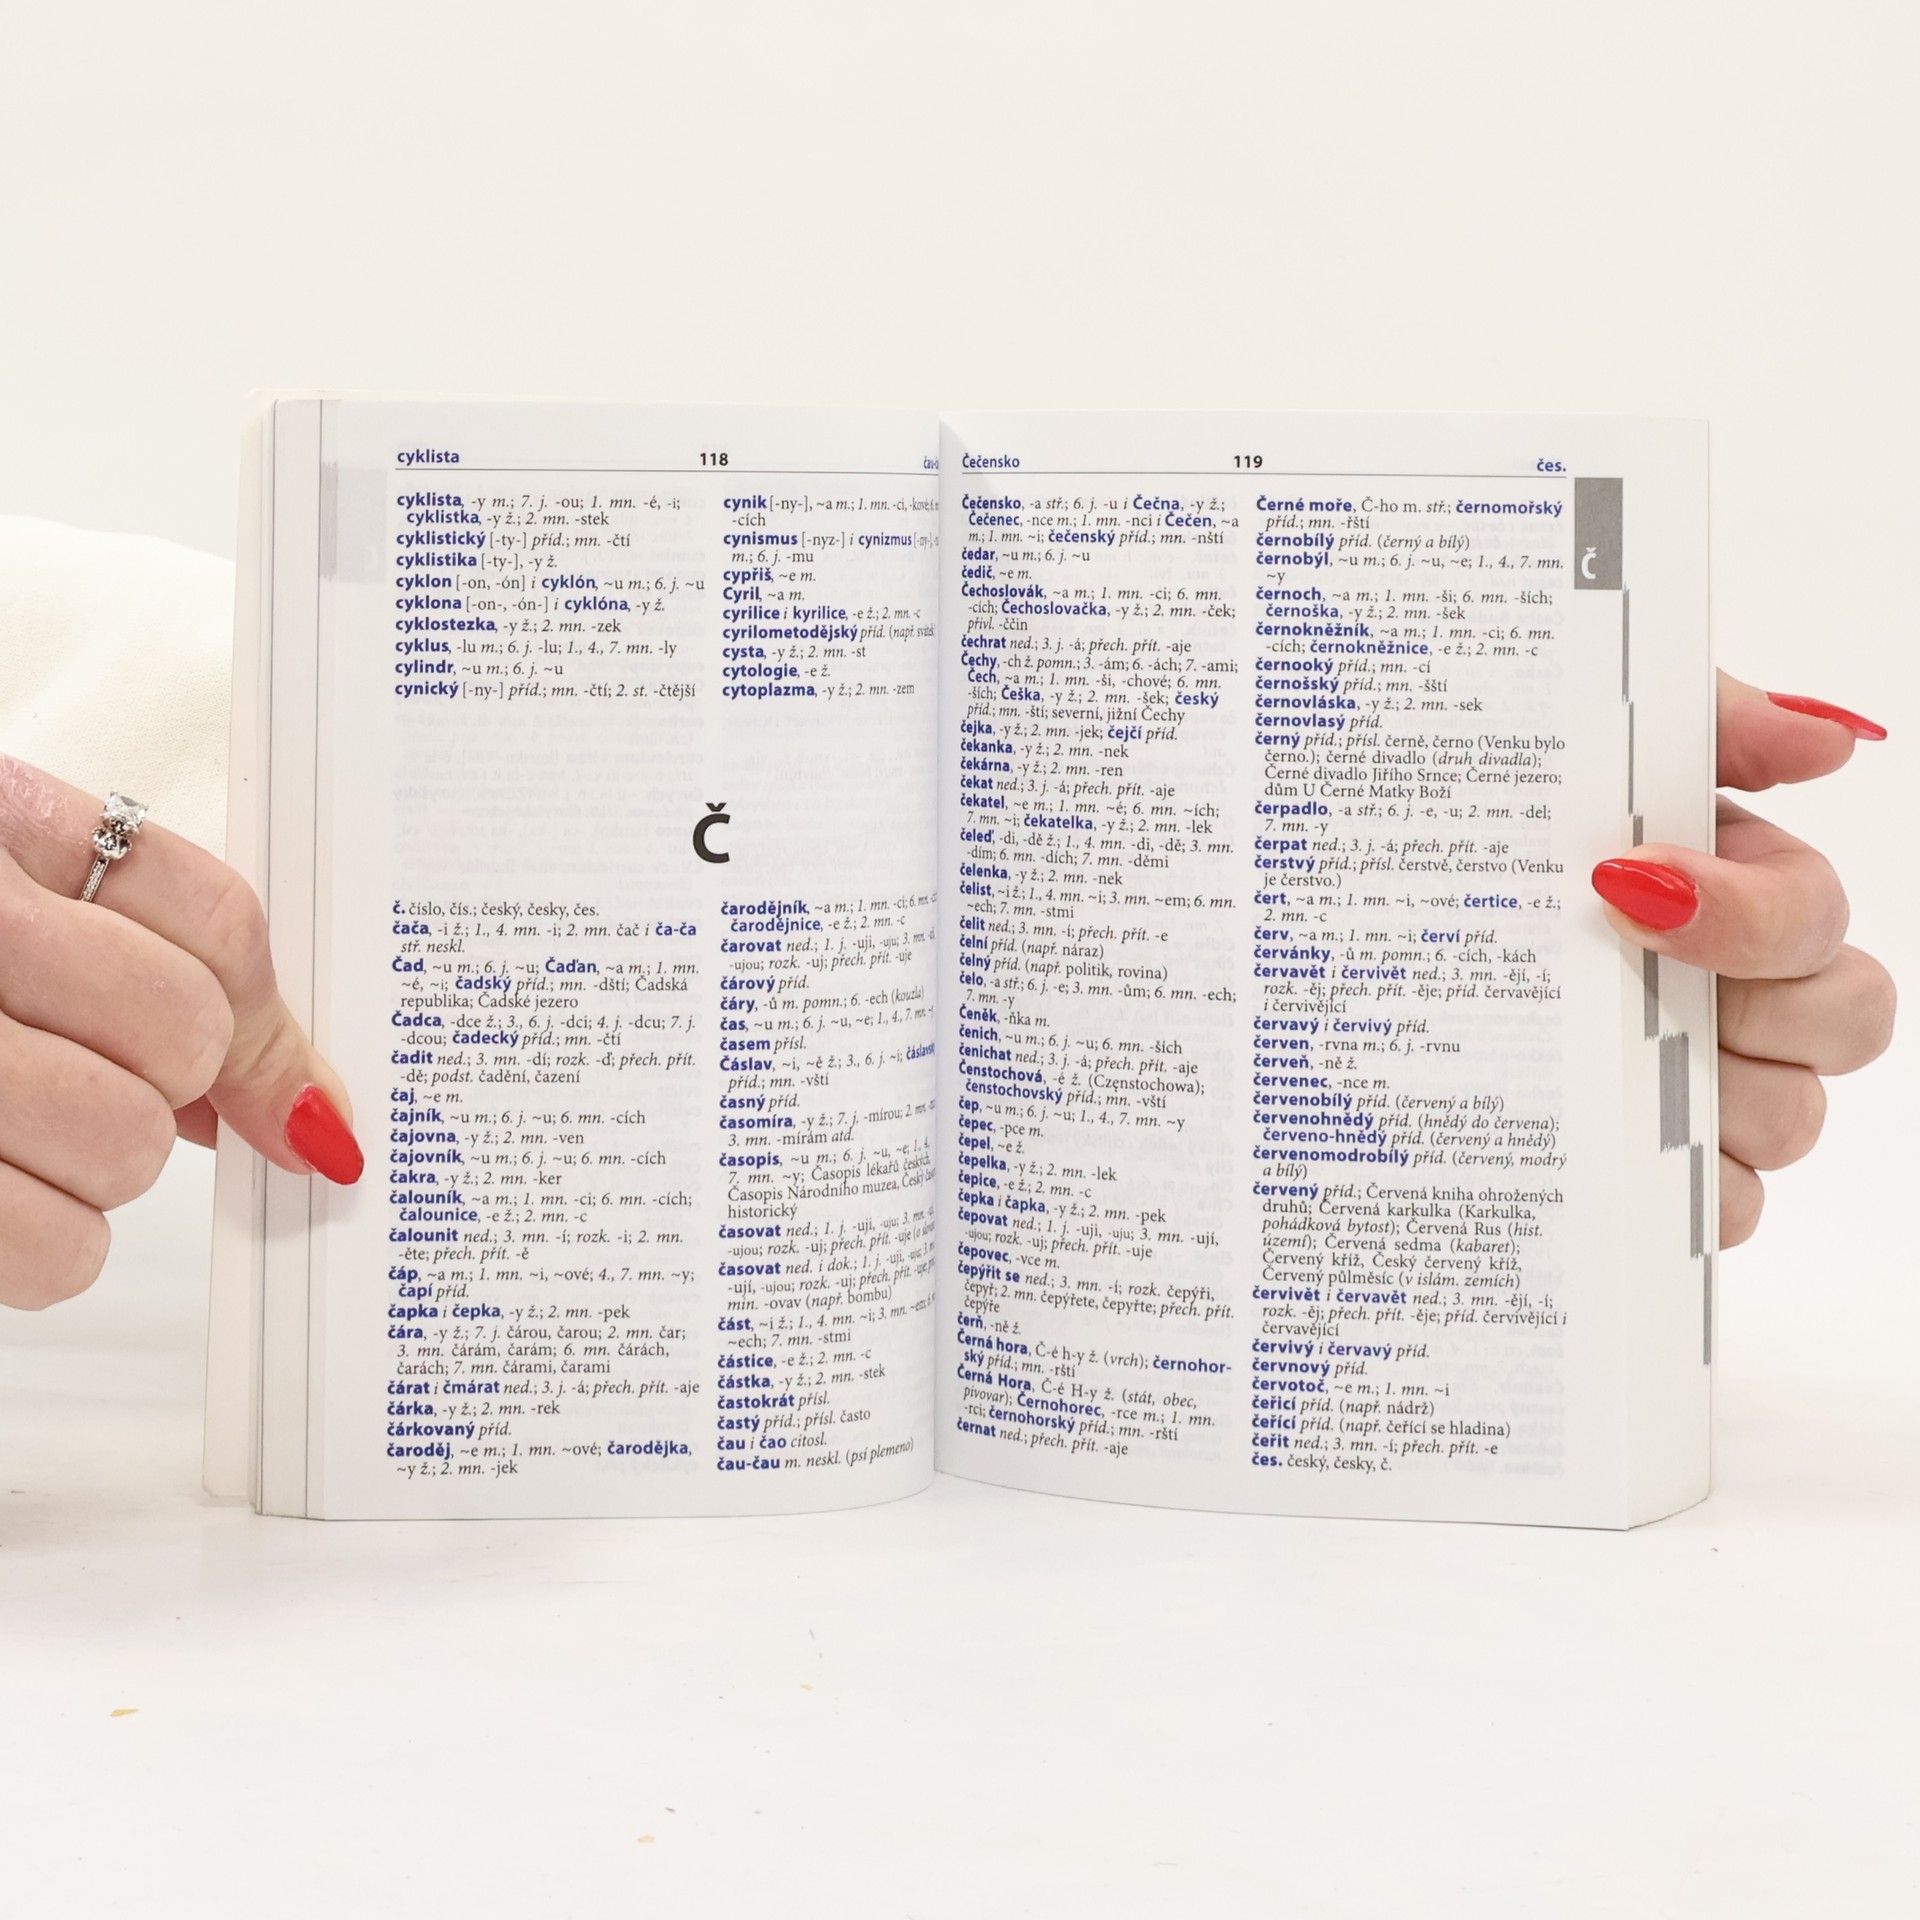 cyklista
118
cyklista, -y m.; 7. j. -ou; 1. mn. -é, -i;
cyklistka, -y ž.; 2. mn. -stek
cyklistický [-ty-] příd.; mn. -čtí
cyklistika [-ty-], -y ž.
cyklon [-on, -ón] i cyklón, ~u m.; 6. j. ~u
cyklona [-on-, -ón-] i cyklóna, -y ž.
cyklostezka, -y ž.; 2. mn. -zek
cyklus, -lu m.; 6. j. -lu; 1., 4., 7. mn. -ly
cylindr, ~u m.; 6. j. ~u
cynický [-ny-] příd.; mn. -čtí; 2. st. -čtější
cynik [-ny-], ~a m.; 1. mn. -ci, -kové;
-cích
cynismus [-nyz-] i cynizmus
m.; 6. j. -mu
cypřiš, ~e m.
Cyril, ~a m.
cyrilice i kyrilice, -e ž.; 2. mn. -c
cyrilometodějský příd. (např.
cysta, -y ž.; 2. mn. -st
cytologie, -e ž.
cytoplazma, -y ž.; 2. mn. -zem
Č
č. číslo, čís.; český, česky, čes.
čača, -i ž.; 1., 4. mn. -i; 2. mn. čač i ča-ča
stř. neskl.
Čad, ~u m.; 6. j. ~u; Čaďan, ~a m.; 1. mn.
~é, ~i; čadský příd.; mn. -dští; Čadská
republika; Čadské jezero
Čadca, -dce ž.; 3., 6. j. -dci; 4. j. -dcu; 7. j.
-dcou; čadecký příd.; mn. -čtí
čadit ned.; 3. mn. -dí; rozk. -ď; přech. přít.
-dě; podst. čadění, čazení
čaj, ~e m.
čajník, ~u m.; 6. j. ~u; 6. mn. -cích
čajovna, -y ž.; 2. mn. -ven
čajovník, ~u m.; 6. j. ~u; 6. mn. -cích
čakra, -y ž.; 2. mn. -ker
čalouník, ~a m.; 1. mn. -ci; 6. mn. -cích;
čalounice, -e ž.; 2. mn. -c
čalounit ned.; 3. mn. -í; rozk. -i; 2. mn.
-ěte; přech. přít. -ě
čáp, ~a m.; 1. mn. ~i, ~ové; 4., 7. mn. ~y;
čapí příd.
čapka i čepka, -y ž.; 2. mn. -pek
čára, -y ž.; 7. j. čárou, čarou; 2. mn. čar;
3. mn. čárám, čarám; 6. mn. čárách,
čarách; 7. mn. čárami, čarami
čárat i čmárat ned.; 3. j. -á; přech. přít. -aje
čárka, -y ž.; 2. mn. -rek
čárkovaný příd.
čaroděj, ~e m.; 1. mn. ~ové; čarodějka,
~y ž.; 2. mn. -jek
čarodějník, ~a m.; 1. mn. -ci; 6. mn.
čarodějnice, -e ž.; 2. mn. -c
čarovat ned.; 1. j. -uji, -uju; 3. mn.
-ujou; rozk. -uj; přech. přít. -uje
čárový příd.
čáry, -ů m. pomn.; 6. -ech (kouzla)
čas, ~u m.; 6. j. ~u, ~e; 1., 4., 7. mn.
časem přísl.
Čáslav, ~i, ~ě ž.; 3., 6. j. ~i; čáslavský
příd.; mn. -vští
časný příd.
časomíra, -y ž.; 7. j. -mírou; 2. mn.
3. mn. -mírám atd.
časopis, ~u m.; 6. j. ~u, ~e; 1., 4.,
7. mn. ~y; Časopis lékařů českých,
Časopis Národního muzea, Český
historický
časovat ned.; 1. j. -uji, -uju; 3. mn.
-ujou; rozk. -uj; přech. přít. -uje
časovat ned. i dok.; 1. j. -uji, -uju;
-ují, -ujou; rozk. -uj; přech. přít. -uje,
min. -ovav (např. bombu)
část, ~i ž.; 1., 4. mn. ~i; 3. mn. ~em;
~ech; 7. mn. -stmi
částice, -e ž.; 2. mn. -c
částka, -y ž.; 2. mn. -stek
častokrát přísl.
častý příd.; přísl. často
čau i čao citosl.
čau-čau m. neskl. (psí plemeno)
Čečensko
119
čes.
Čečensko, -a stř.; 6. j. -u i Čečna, -y ž.;
Čečenec, -nce m.; 1. mn. -nci i Čečen, ~a
m.; 1. mn. ~i; čečenský příd.; mn. -nští
čedar, ~u m.; 6. j. ~u
čedič, ~e m.
Čechoslovák, ~a m.; 1. mn. -ci; 6. mn.
-cích; Čechoslovačka, -y ž.; 2. mn. -ček;
přivl. -ččin
čechrat ned.; 3. j. -á; přech. přít. -aje
Čechy, -ch ž. pomn.; 3. -ám; 6. -ách; 7. -ami;
Čech, ~a m.; 1. mn. -ši, -chové; 6. mn.
-ších; Češka, -y ž.; 2. mn. -šek; český
příd.; mn. -ští; severní, jižní Čechy
čejka, -y ž.; 2. mn. -jek; čejčí příd.
čekanka, -y ž.; 2. mn. -nek
čekárna, -y ž.; 2. mn. -ren
čekat ned.; 3. j. -á; přech. přít. -aje
čekatel, ~e m.; 1. mn. ~é; 6. mn. ~ích;
7. mn. ~i; čekatelka, -y ž.; 2. mn. -lek
čeleď, -di, -dě ž.; 1., 4. mn. -di, -dě; 3. mn.
-dím; 6. mn. -dích; 7. mn. -děmi
čelenka, -y ž.; 2. mn. -nek
čelist, ~i ž.; 1., 4. mn. ~i; 3. mn. ~em; 6. mn.
~ech; 7. mn. -stmi
čelit ned.; 3. mn. -í; přech. přít. -e
čelní příd. (např. náraz)
čelný příd. (např. politik, rovina)
čelo, -a stř.; 6. j. -e; 3. mn. -ům; 6. mn. -ech;
7. mn. -y
Čeněk, -ňka m.
čenich, ~u m.; 6. j. ~u; 6. mn. -ších
čenichat ned.; 3. j. -á; přech. přít. -aje
Čenstochová, -é ž. (Częnstochowa);
čenstochovský příd.; mn. -vští
čep, ~u m.; 6. j. ~u; 1., 4., 7. mn. ~y
čepec, -pce m.
čepel, ~e ž.
čepelka, -y ž.; 2. mn. -lek
čepice, -e ž.; 2. mn. -c
čepka i čapka, -y ž.; 2. mn. -pek
čepovat ned.; 1. j. -uji, -uju; 3. mn. -ují,
-ujou; rozk. -uj; přech. přít. -uje
čepovec, -vce m.
čepýřit se ned.; 3. mn. -í; rozk. čepýři,
čepyř; 2. mn. čepýřete, čepyřte; přech. přít.
čepýře
čerň, -ně ž.
Černá hora, Č-é h-y ž. (vrch); černohor-
ský příd.; mn. -rští
Černá Hora, Č-é H-y ž. (stát, obec,
pivovar); Černohorec, -rce m.; 1. mn.
-rci; černohorský příd.; mn. -rští
černat ned.; přech. přít. -aje
Černé moře, Č-ho m. stř.; černomořský
příd.; mn. -řští
černobílý příd. (černý a bílý)
černobýl, ~u m.; 6. j. ~u, ~e; 1., 4., 7. mn.
~y
černoch, ~a m.; 1. mn. -ši; 6. mn. -ších;
černoška, -y ž.; 2. mn. -šek
černokněžník, ~a m.; 1. mn. -ci; 6. mn.
-cích; černokněžnice, -e ž.; 2. mn. -c
černooký příd.; mn. -cí
černošský příd.; mn. -šští
černovláska, -y ž.; 2. mn. -sek
černovlasý příd.
černý příd.; přísl. černě, černo (Venku bylo
černo.); černé divadlo (druh divadla);
Černé divadlo Jiřího Srnce; Černé jezero;
dům U Černé Matky Boží
čerpadlo, -a stř.; 6. j. -e, -u; 2. mn. -del;
7. mn. -y
čerpat ned.; 3. j. -á; přech. přít. -aje
čerstvý příd.; přísl. čerstvě, čerstvo (Venku
je čerstvo.)
čert, ~a m.; 1. mn. ~i, ~ové; čertice, -e ž.;
2. mn. -c
červ, ~a m.; 1. mn. ~i; červí příd.
červánky, -ů m. pomn.; 6. -cích, -kách
červavět i červivět ned.; 3. mn. -ějí, -í;
rozk. -ěj; přech. přít. -ěje; příd. červavějící
i červivějící
červavý i červivý příd.
červen, -rvna m.; 6. j. -rvnu
červeň, -ně ž.
červenec, -nce m.
červenobílý příd. (červený a bílý)
červenohnědý příd. (hnědý do červena);
červeno-hnědý příd. (červený a hnědý)
červenomodrobílý příd. (červený, modrý
a bílý)
červený příd.; Červená kniha ohrožených
druhů; Červená karkulka (Karkulka,
pohádková bytost); Červená Rus (hist.
území); Červená sedma (kabaret);
Červený kříž, Český červený kříž,
Červený půlměsíc (v islám. zemích)
červivět i červavět ned.; 3. mn. -ějí, -í;
rozk. -ěj; přech. přít. -ěje; příd. červivějící i
červavějící
červivý i červavý příd.
červnový příd.
červotoč, ~e m.; 1. mn. ~i
čeřicí příd. (např. nádrž)
čeřící příd. (např. čeřící se hladina)
čeřit ned.; 3. mn. -í; přech. přít. -e
čes. český, česky, č.
Č